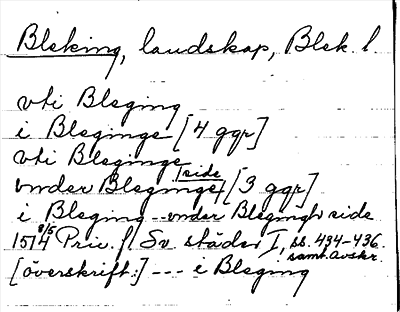 Bleking, landskap, Blek. l.
vti Bleging
i Bleginge [4 ggr]
vti Bleginge
vnder Bleginge side [3 ggr]
i Bleging -- vnder Blegingh side
15 8/5 74 Priv. f. Sv städer I, ss. 434-436.
samt. avskr.
[överskrift:] --- i Bleging